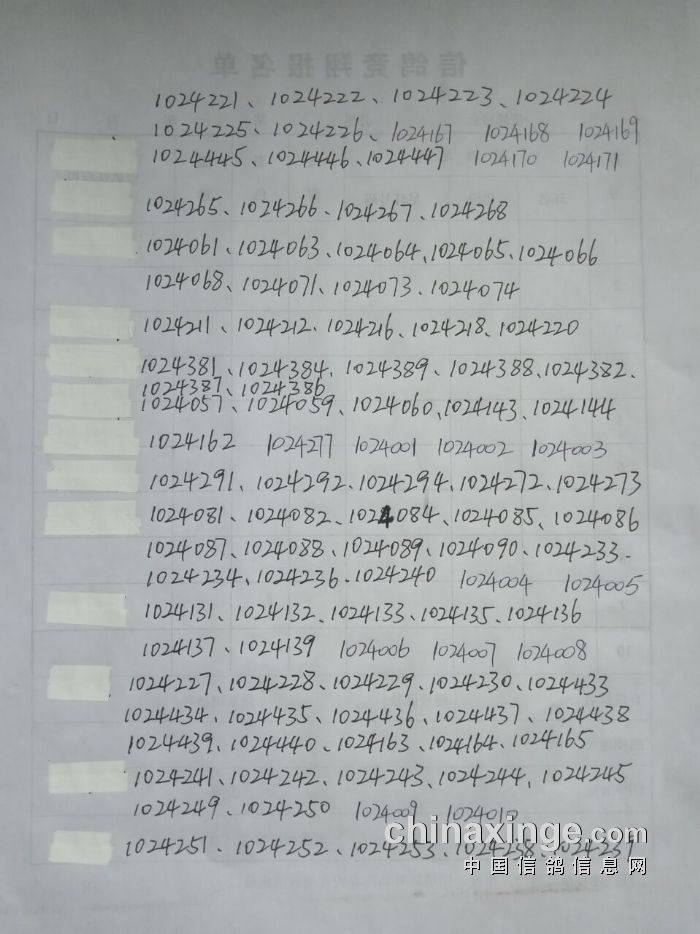 1024221、1024222、1024223、1024224
1024225、1024226、1024167 1024168 1024169
1024445、1024446、1024447 1024170 1024171
1024265、1024266、1024267、1024268
1024061、1024063、1024064、1024065、1024066
1024068、1024071、1024073、1024074
1024211、1024212、1024216、1024218、1024220
1024381、1024384、1024389、1024388、1024382、
1024387、1024386
1024057、1024059、1024060、1024143、1024144
1024162 1024277 1024001 1024002 1024003
1024291、1024292、1024294、1024272、1024273
1024081、1024082、1024084、1024085、1024086
1024087、1024088、1024089、1024090、1024233、
1024234、1024236、1024240 1024004 1024005
1024131、1024132、1024133、1024135、1024136
1024137、1024139 1024006 1024007 1024008
1024227、1024228、1024229、1024230、1024433
1024434、1024435、1024436、1024437、1024438
1024439、1024440、1024163、1024164、1024165
1024241、1024242、1024243、1024244、1024245
1024249、1024250 1024009 1024010
1024251、1024252、1024253、1024258、
chinaxinge.com
中国信鸽信息网